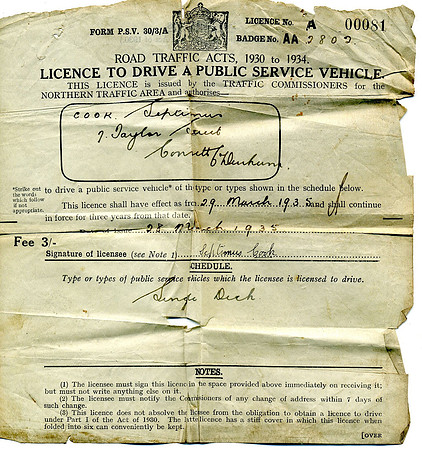 FORM P.S.V. 30/3/A
LICENCE No. A 00081
BADGE No. AA 2802
ROAD TRAFFIC ACTS, 1930 to 1934.
LICENCE TO DRIVE A PUBLIC SERVICE VEHICLE.
THIS LICENCE is issued by the TRAFFIC COMMISSIONERS for the
NORTHERN TRAFFIC AREA and authorises—
COOK. Septimus
7. Taylor
Consett Co Durham
*Strike out the words which follow if not appropriate.
to drive a public service vehicle* of the type or types shown in the schedule below.
This licence shall have effect as from 29 March 1935 and shall continue
in force for three years from that date.
28 March 1935
Fee 3/-
Signature of licensee (see Note 1) Septimus Cook
CHEDULE.
Type or types of public service hicles which the licensee is licensed to drive.
Single Deck
NOTES.
(1) The licensee must sign this licence in the space provided above immediately on receiving it;
but must not write anything else on it.
(2) The licensee must notify the Comissioners of any change of address within 7 days of
such change.
(3) This licence does not absolve the licensee from the obligation to obtain a licence to drive
under Part I of the Act of 1930. The latter licence has a stiff cover in which this licence when
folded into six can conveniently be kept.
[OVER